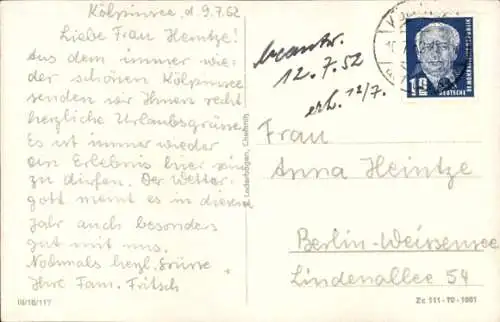 Kölpinsee, d. 9.7.52
Liebe Frau Heintze!
Aus dem immer wie-
der schönen Kölpinsee
senden wir Ihnen recht
herzliche Urlaubsgrüsse.
Es ist immer wieder
ein Erlebnis hier sein
zu dürfen. Der Wetter-
gott meint es in diesem
Jahr auch besonders
gut mit uns.
Nohmals herzl. Grüsse
Ihre Fam. Fritsch
III/18/117
Lederbogen, Chemnitz
beantw.
12.7.52
erh. 12/7.
DEUTSCHE
Frau
Anna Heintze
Berlin-Weissensee
Lindenallee 54